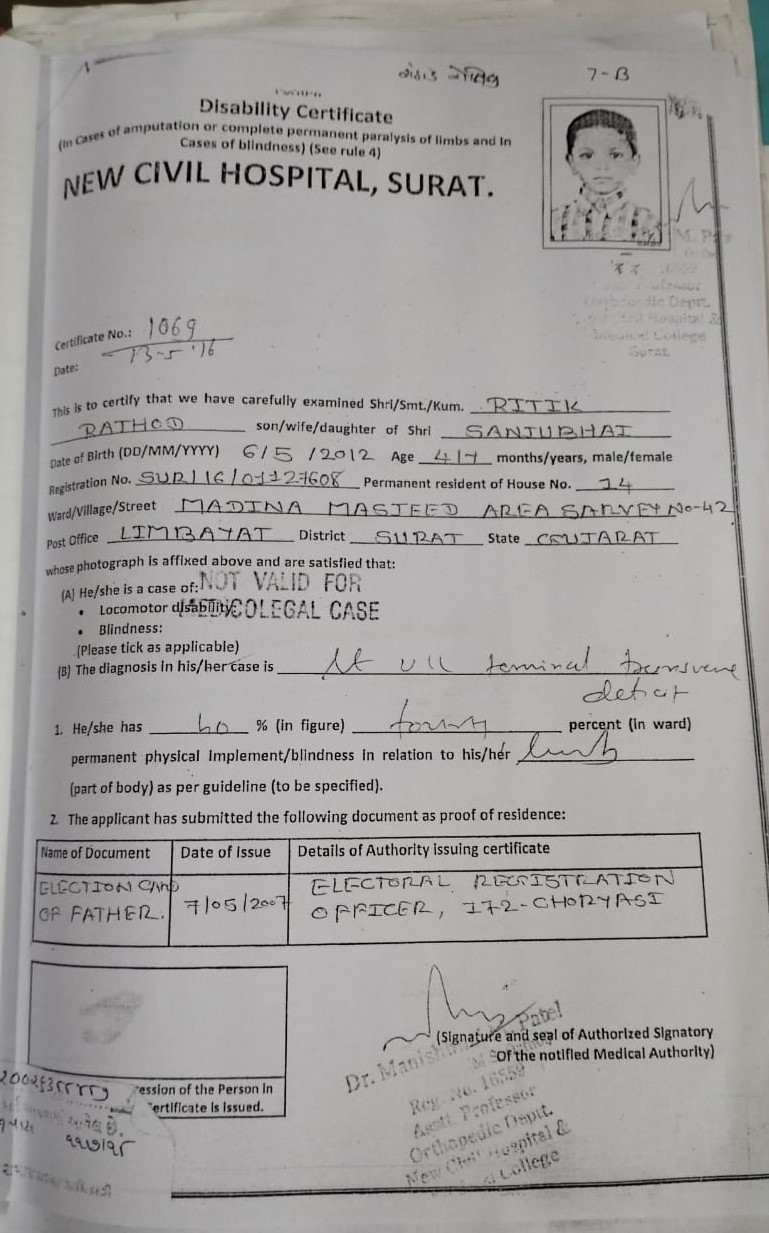 7-B
Disability Certificate
(In Cases of amputation or complete permanent paralysis of limbs and in
Cases of blindness) (See rule 4)
NEW CIVIL HOSPITAL, SURAT.
Orthopaedic Deptt.
Hospital &
Medical College
Surat
Certificate No.: 1069
Date: 13-5-'16
This is to certify that we have carefully examined Shri/Smt./Kum. RITIK
RATHOD son/wife/daughter of Shri SANJUBHAI
Date of Birth (DD/MM/YYYY) 6/5/2012 Age 4/Y months/years, male/female
Registration No. SUR/16/01127608 Permanent resident of House No. 14
Ward/Village/Street MADINA MASJEED AREA SARVEY No-42
Post Office LIMBAYAT District SURAT State GUJARAT
whose photograph is affixed above and are satisfied that:
(A) He/she is a case of: NOT VALID FOR
• Locomotor disability: MEDICOLEGAL CASE
• Blindness:
(Please tick as applicable)
(B) The diagnosis in his/her case is terminal transverse
1. He/she has 40 % (in figure) forty percent (in ward)
permanent physical Implement/blindness in relation to his/her limb
(part of body) as per guideline (to be specified).
2. The applicant has submitted the following document as proof of residence:
Name of Document Date of Issue Details of Authority issuing certificate
ELECTION CARD 7/05/2007 ELECTORAL REGISTRATION
OF FATHER. OFFICER, 172-CHORYASI
(Signature and seal of Authorized Signatory
Of the notified Medical Authority)
Dr. Manish Patel
Reg. No. 16559
Asstt. Professor
Orthopedic Deptt.
New Civil Hospital &
College
ession of the Person in
ertificate is Issued.